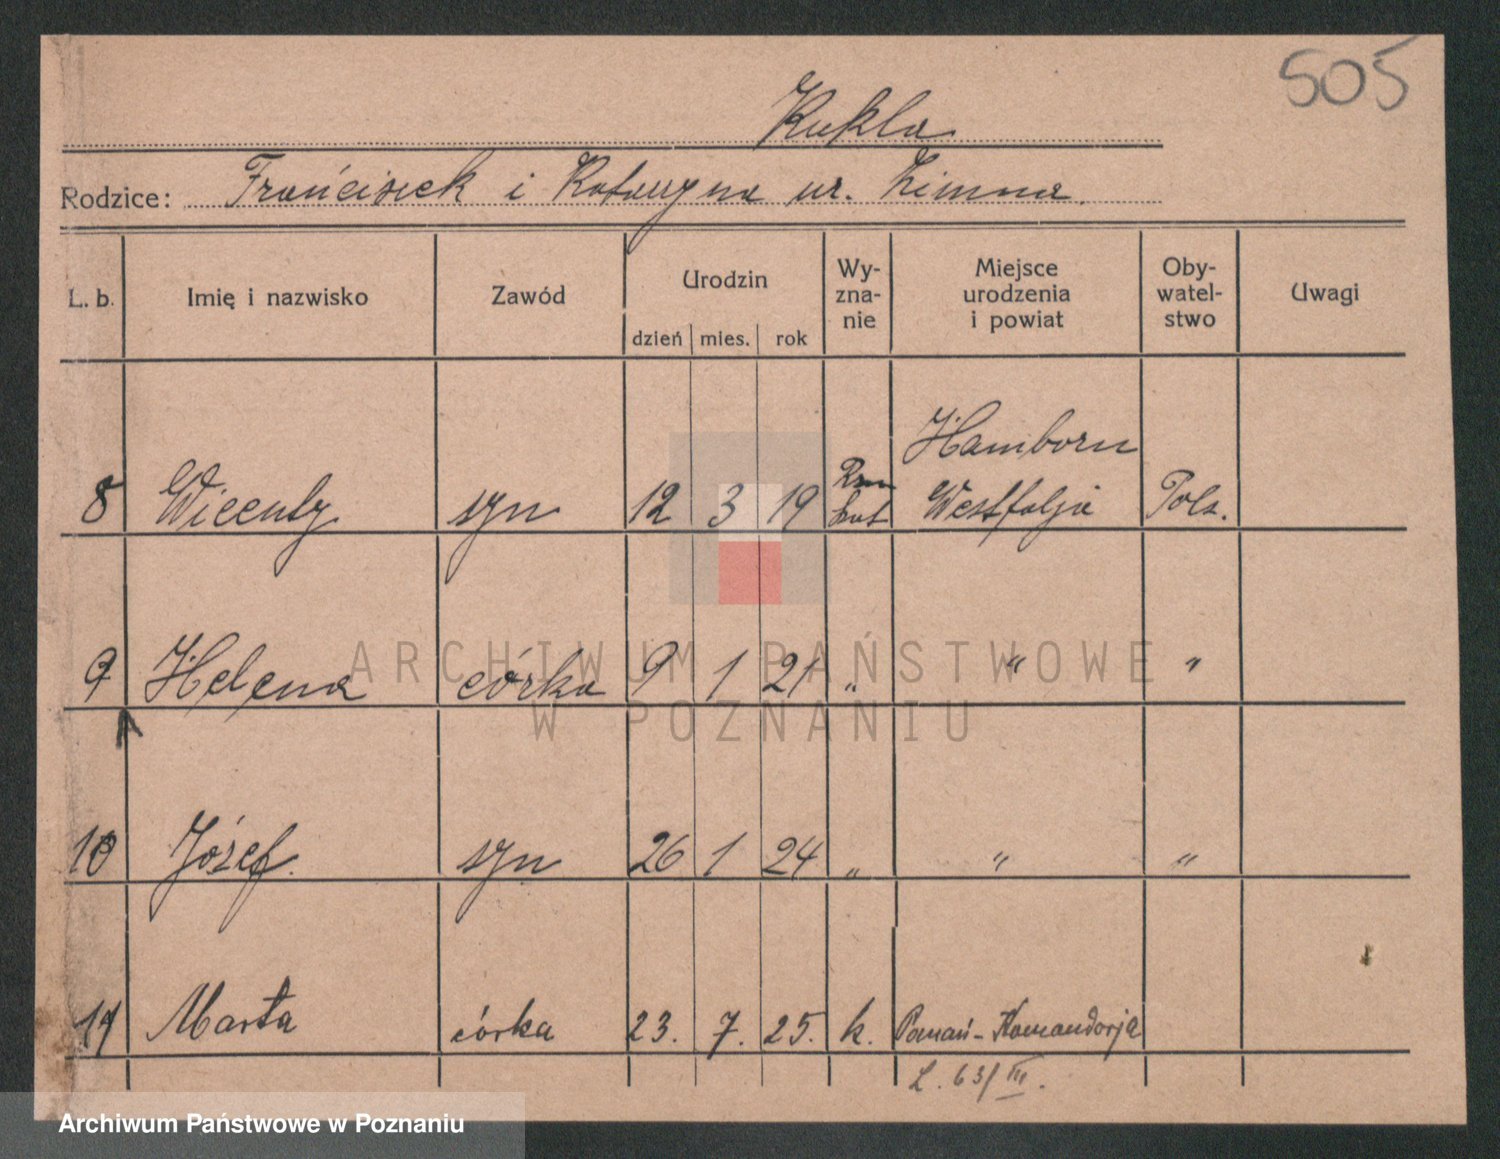 505
Kukla
Rodzice: Frańciszek i Katarzyna ur. Zimna.
L. b. Imię i nazwisko Zawód Urodzin Wy-zna-nie Miejsce urodzenia i powiat Oby-watel-stwo Uwagi
dzień mies. rok
8 Wicenty syn 12 3 19 Rzm kat Hamborn Westfalja Pols.
9 Helena córka 9 1 21 " " "
10 Józef. syn 26 1 24 " " "
11 Marta córka 23. 7. 25. k. Poznań - Komandorja
L. 63/III.
ARCHIWUM PAŃSTWOWE
W POZNANIU
Archiwum Państwowe w Poznaniu